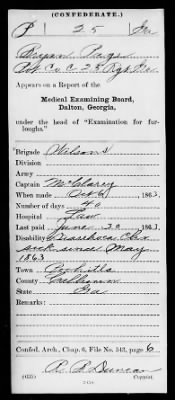 (CONFEDERATE.)
P 25 Ga
Bryant Pa
Pvt Co C 25 Rgt Ga
Appears on a Report of the
Medical Examining Board,
Dalton, Georgia,
under the head of "Examination for fur-
loughs."
Brigade Wilson's
Division
Army
Captain
When made Oct 6, 1863.
Number of days 40
Hospital Law
Last paid June 30, 1863.
Disability Diarrhoea Chr
sick since May
1863
Town
County
State Ga
Remarks:
Confed. Arch., Chap. 6, File No. 543, page 6
R. R. Duncan
(635) Copyist.